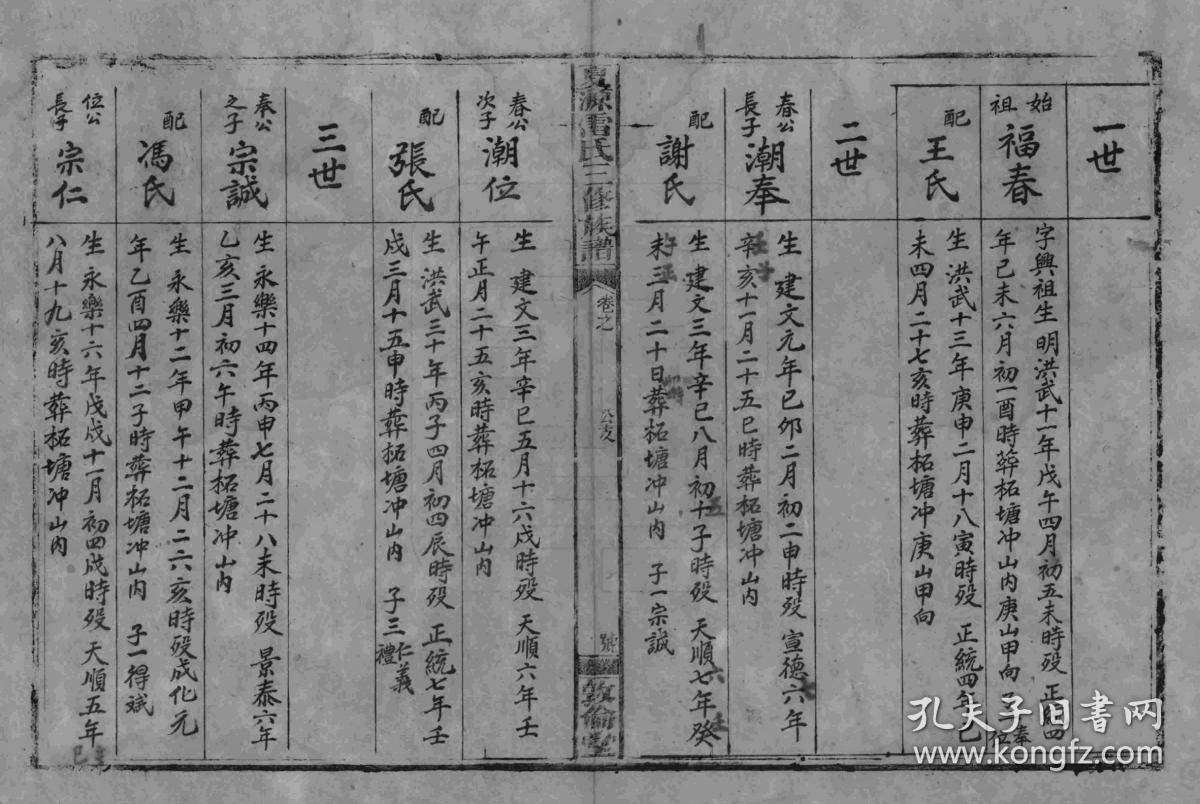 一世
始祖 福春
字興祖生明洪武十一年戊午四月初五未時殁 正統四
年己未六月初一酉時葬柘塘冲山内庚山甲向 子 奉 位
配 王氏
生 洪武十三年庚申二月十八寅時殁 正統四年己
未四月二十七亥時葬柘塘冲庚山甲向
二世
春公長子 潮奉
生 建文元年己卯二月初二申時殁 宣德六年
辛亥十一月二十五巳時葬柘塘冲山内
配 謝氏
生 建文三年辛巳八月初十子時殁 天順七年癸
未三月二十日葬柘塘冲山内 子一宗誠
源雷氏三修族譜
卷之
公支
號
敦倫堂
春公次子 潮位
生 建文三年辛巳五月十六戌時殁 天順六年壬
午正月二十五亥時葬柘塘冲山内
配 張氏
生 洪武三十年丙子四月初四辰時殁 正統七年壬
戌三月十五申時葬柘塘冲山内 子三 仁義禮
三世
奉公之子 宗誠
生 永樂十四年丙申七月二十八未時殁 景泰六年
乙亥三月初六午時葬柘塘冲山内
配 馮氏
生 永樂十二年甲午十二月二六亥時殁成化元
年乙酉四月十二子時葬柘塘冲山内 子一得斌
位公長子 宗仁
生 永樂十六年戊戌十一月初四戌時殁 天順五年
八月十九亥時葬柘塘冲山内
孔夫子旧书网
www.kongfz.com